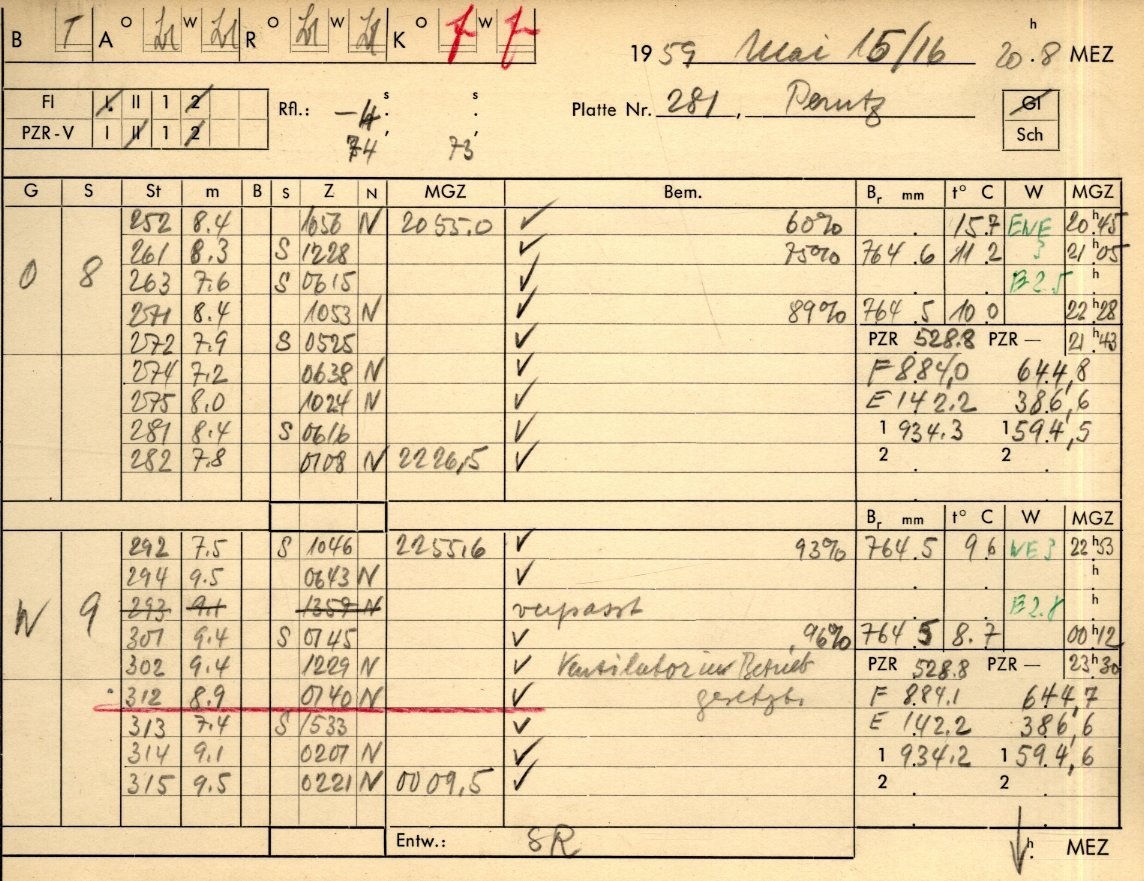 B T A O W R O W K O f W f
1959 Mai 15/16 20.8 h MEZ
Fl I II 1 2
PZR-V I II 1 2
Rfl.: -4 s s
74 73
Platte Nr. 281, Perutz
Gl
Sch
G S St m B S Z N MGZ Bem. Br mm t° C W MGZ
252 8.4 1050 N 2055.0 ✓ 60% 15.7 ENE 20h45
O 8 261 8.3 S 1228 ✓ 75% 764.6 11.2 3 21h05
263 7.6 S 0615 ✓ B2.5 h
271 8.4 1053 N ✓ 89% 764.5 10.0 22h28
272 7.9 S 0525 ✓ PZR 528.8 PZR — 21h43
274 7.2 0638 N ✓ F 884,0 644,8
275 8.0 1024 N ✓ E 142.2 386,6
281 8.4 S 0616 ✓ 1 934.3 1 594,5
282 7.8 0108 N 2226,5 ✓ 2 2
Br mm t° C W MGZ
292 7.5 S 1046 2255,6 ✓ 93% 764.5 9.6 NE3 22h53
294 9.5 0643 N ✓ h
W 9 293 9.1 1359 N verpasst B2.8 h
301 9.4 S 0145 ✓ 96% 764.5 8.7 00h12
302 9.4 1229 N ✓ Ventilator in Betrieb PZR 528.8 PZR — 23h30
312 8.9 0140 N ✓ gesetzt. F 884.1 644,7
313 7.4 S 1533 ✓ E 142.2 386,6
314 9.1 0207 N ✓ 1 934.2 1 594,6
315 9.5 0221 N 0009,5 ✓ 2 2
Entw.: SR h MEZ